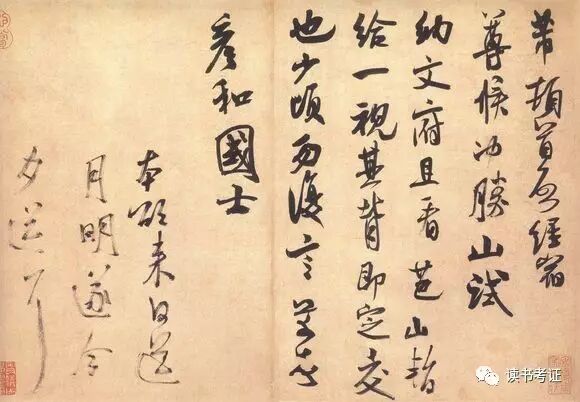 芾頓首啓經宿
尊候冲勝山試
納文府且看芭山暫
給一視其背即定交
也少頃勿復言芾頓首
彥和國士
本欲來日送
月明遂今
夕送耳
读书考证